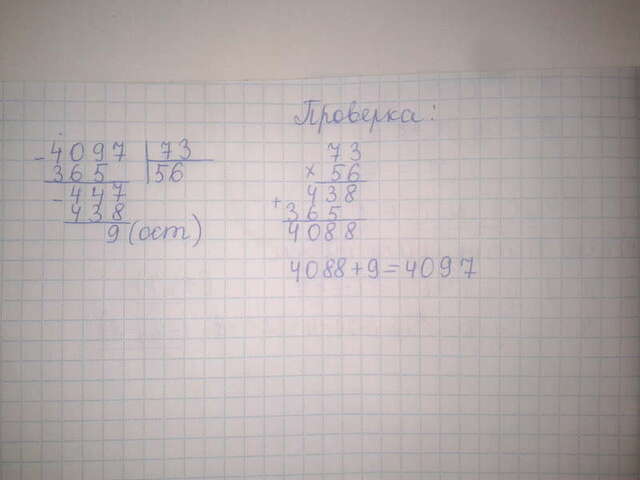 Проверка:
- 4097 | 73
365 | 56
- 447
438
9 (ост)
73
× 56
438
+ 365
4088
4088+9=4097